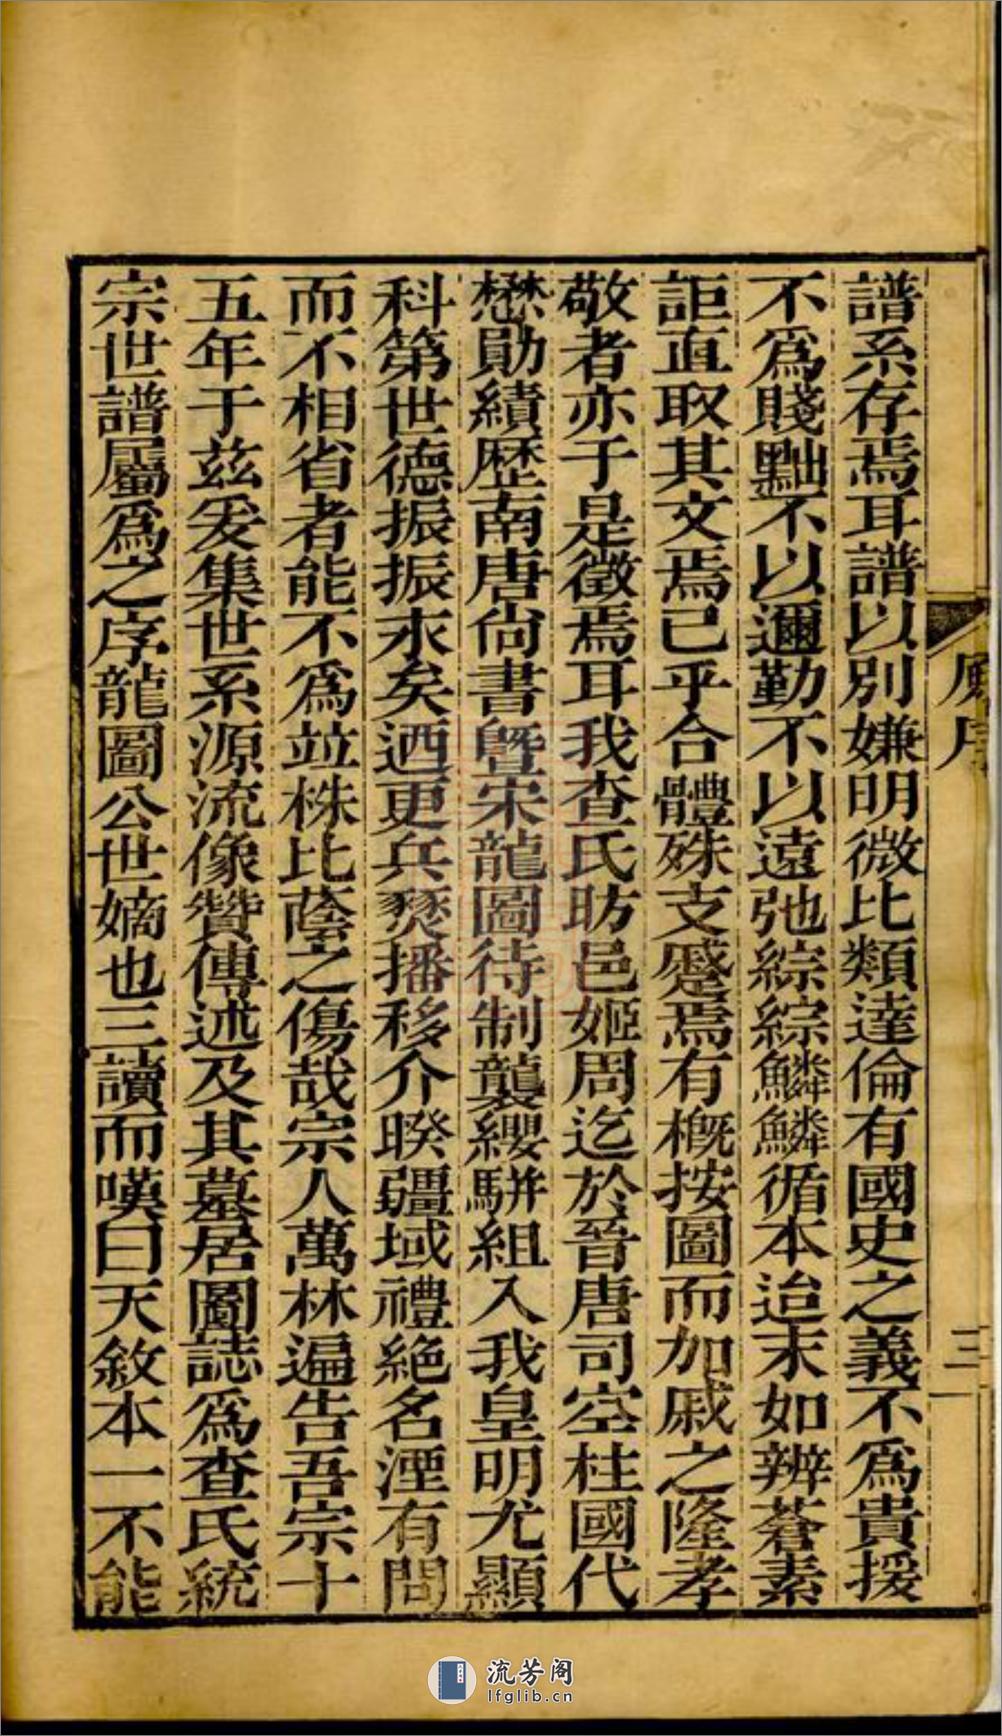 譜系存焉耳譜以別嫌明微比類達倫有國史之義不爲貴援
不爲賤黜不以邇勤不以遠弛綜綜鱗鱗循本迨末如辨蒼素
詎直取其文焉已乎合體殊支蹙焉有槪按圖而加戚之隆孝
敬者亦于是徵焉耳我查氏昉邑姬周迄於晉唐司空柱國代
懋勛績歷南唐尙書曁宋龍圖待制襲纓駢組入我皇明尤顯
科第世德振振永矣迺更兵燹播移介暌疆域禮絕名湮有問
而不相省者能不爲竝株比蔭之傷哉宗人萬林遍告吾宗十
五年于茲爰集世系源流像贊傳述及其墓居圖誌爲查氏統
宗世譜屬爲之序龍圖公世嫡也三讀而嘆曰天敘本一不能
序
三
流芳阁
lfglib.cn